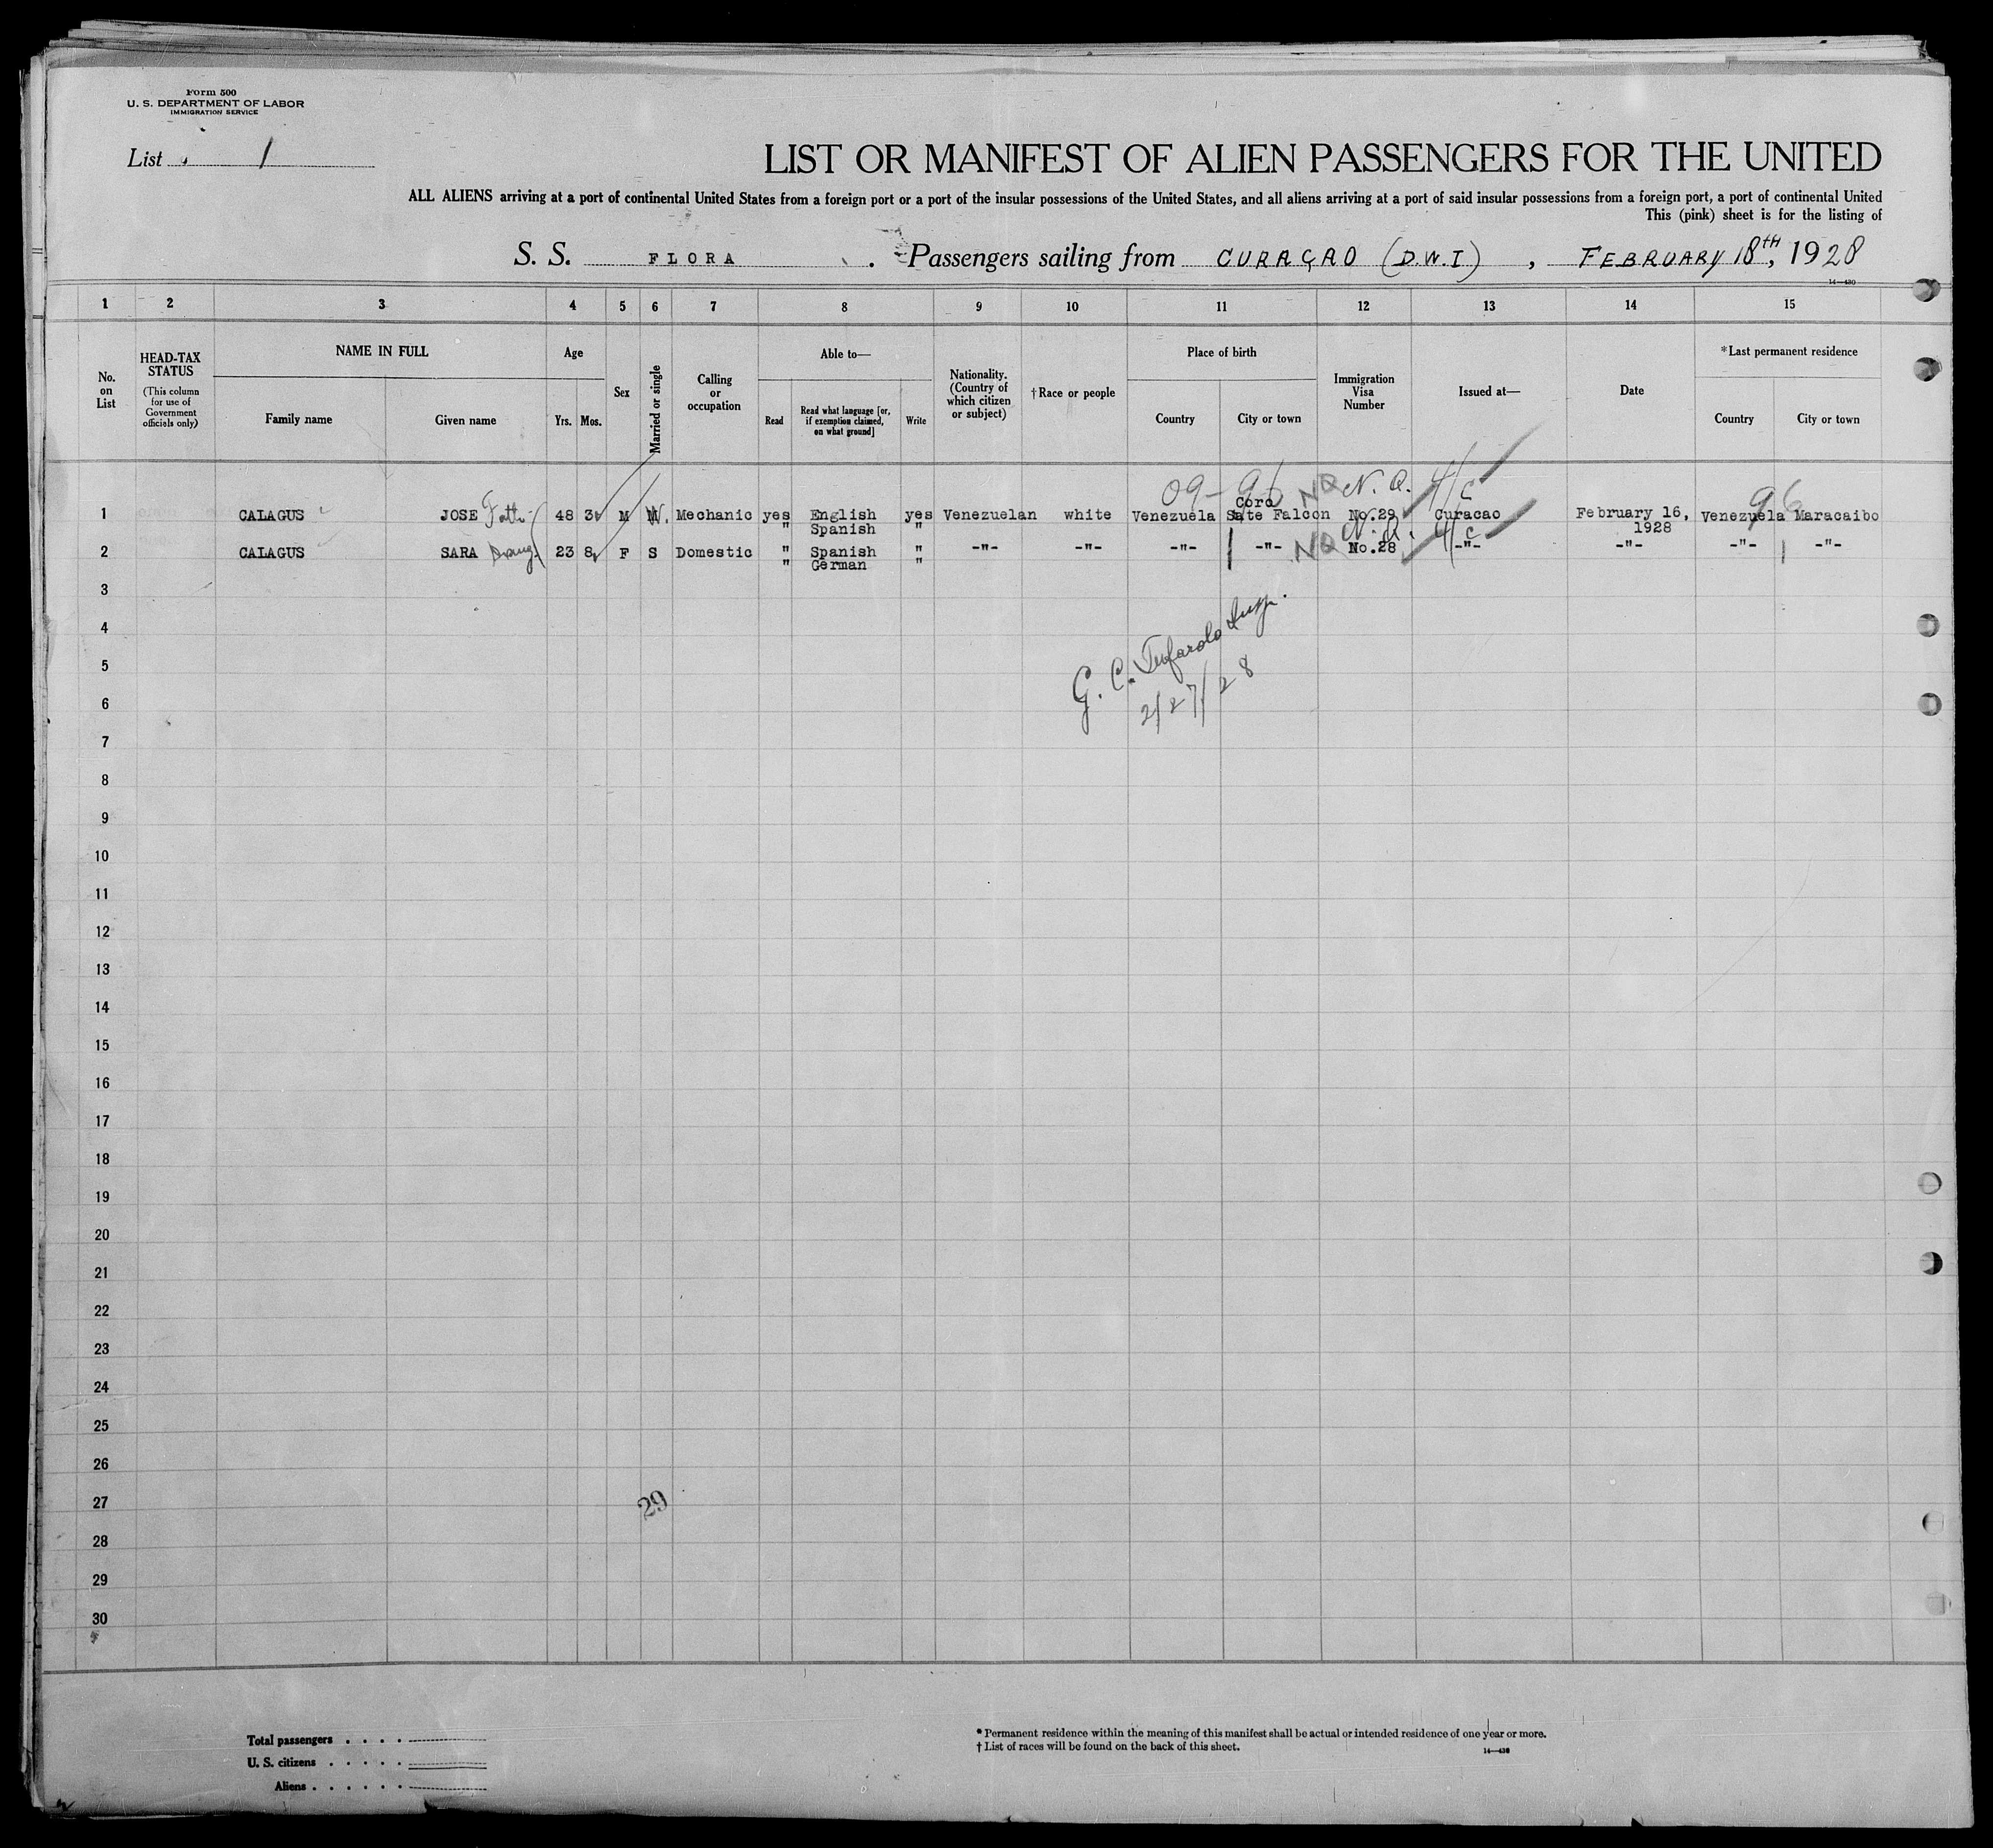 Form 500
U. S. DEPARTMENT OF LABOR
IMMIGRATION SERVICE
List 1
LIST OR MANIFEST OF ALIEN PASSENGERS FOR THE UNITED
ALL ALIENS arriving at a port of continental United States from a foreign port or a port of the insular possessions of the United States, and all aliens arriving at a port of said insular possessions from a foreign port, a port of continental United
This (pink) sheet is for the listing of
S. S. FLORA . Passengers sailing from CURAÇAO (D.W.I) , FEBRUARY 18th, 1928
14—430
1 2 3 4 5 6 7 8 9 10 11 12 13 14 15
No. on List
HEAD-TAX STATUS
(This column for use of Government officials only)
NAME IN FULL
Family name Given name
Age
Yrs. Mos.
Sex
Married or single
Calling or occupation
Able to—
Read
Read what language [or, if exemption claimed, on what ground]
Write
Nationality. (Country of which citizen or subject)
†Race or people
Place of birth
Country City or town
Immigration Visa Number
Issued at—
Date
*Last permanent residence
Country City or town
09-96 NQ N.Q. 4/c 96
Coro
1 CALAGUS JOSE Fath 48 3 M W. Mechanic yes English yes Venezuelan white Venezuela State Falcon No.29 Curacao February 16, Venezuela Maracaibo
" Spanish " 1928
NQ N.Q. 4/c
2 CALAGUS SARA Daug. 23 8 F S Domestic " Spanish " -"- -"- -"- -"- No.28 -"- -"- -"- -"-
" German "
3
4
G. C. Insp.
5
6
2/27/28
7
8
9
10
11
12
13
14
15
16
17
18
19
20
21
22
23
24
25
26
27
29
28
29
30
Total passengers . . . .
U. S. citizens . . . . .
Aliens . . . . . .
* Permanent residence within the meaning of this manifest shall be actual or intended residence of one year or more.
† List of races will be found on the back of this sheet.
14—430